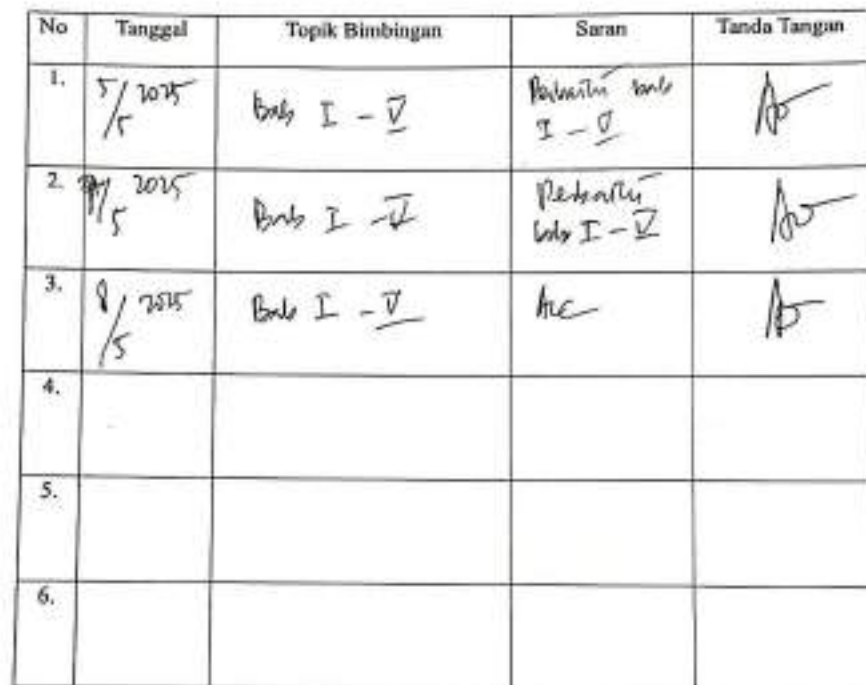 No Tanggal Topik Bimbingan Saran Tanda Tangan
1. 5/5 2025 Bab I - V Perbaiki bab
I - V
2. /5 2025 Bab I - V Perbaiki
bab I - V
3. 8/5 2025 Bab I - V Acc
4.
5.
6.